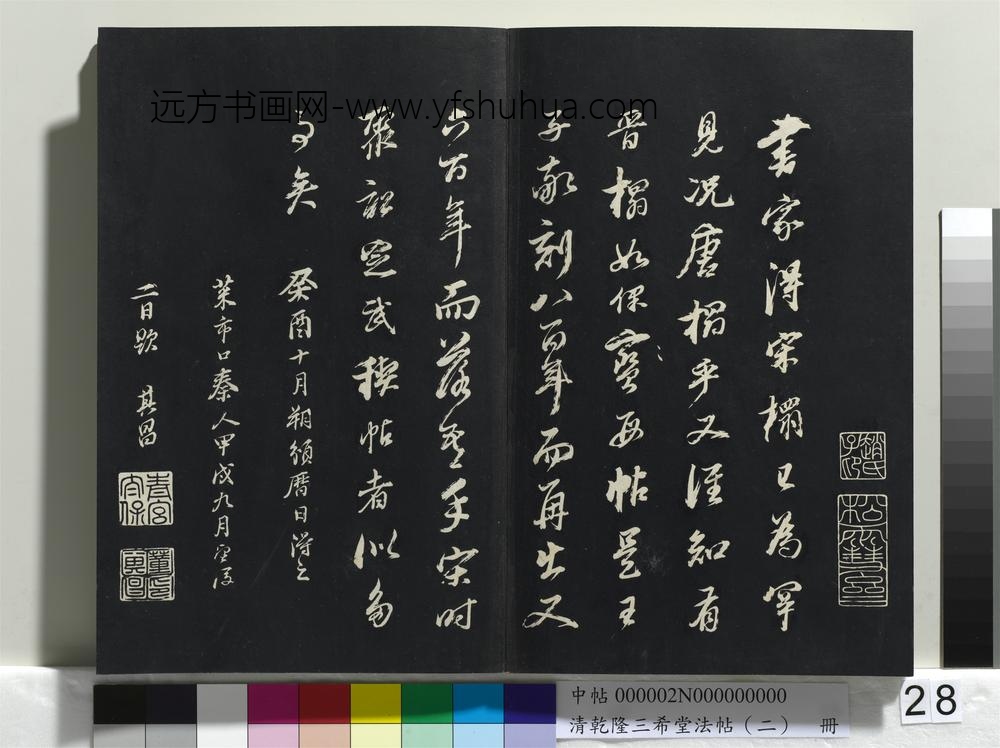 远方书画网-www.yfshuhua.com
松雪齋
書家得宋榻已為罕
見况唐榻乎又谁知有
晉榻如保寳母帖是王
子敬刻八百年而再出又
六百年而落吾手宋時
聚訟定武禊帖者似多
事矣 癸酉十月朔頒曆日得之
菜市口秦人甲戌九月
二日題 其昌
中帖 000002N000000000
清乾隆三希堂法帖（二） 冊
28